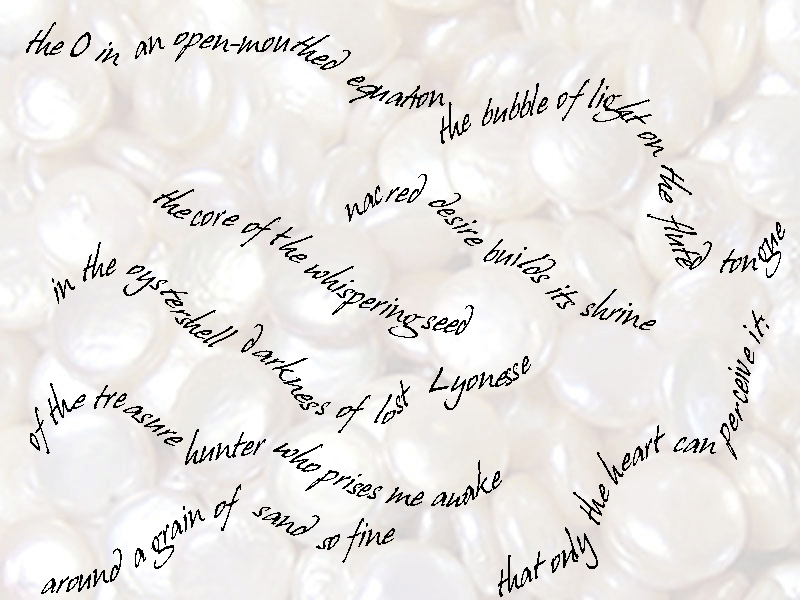 the O in an open-mouthed equation
the bubble of light on the fluted tongue
nacred desire builds its shrine
the core of the whispering seed
in the oystershell darkness of lost Lyonesse
of the treasure hunter who prises me awake
around a grain of sand so fine
that only the heart can perceive it.